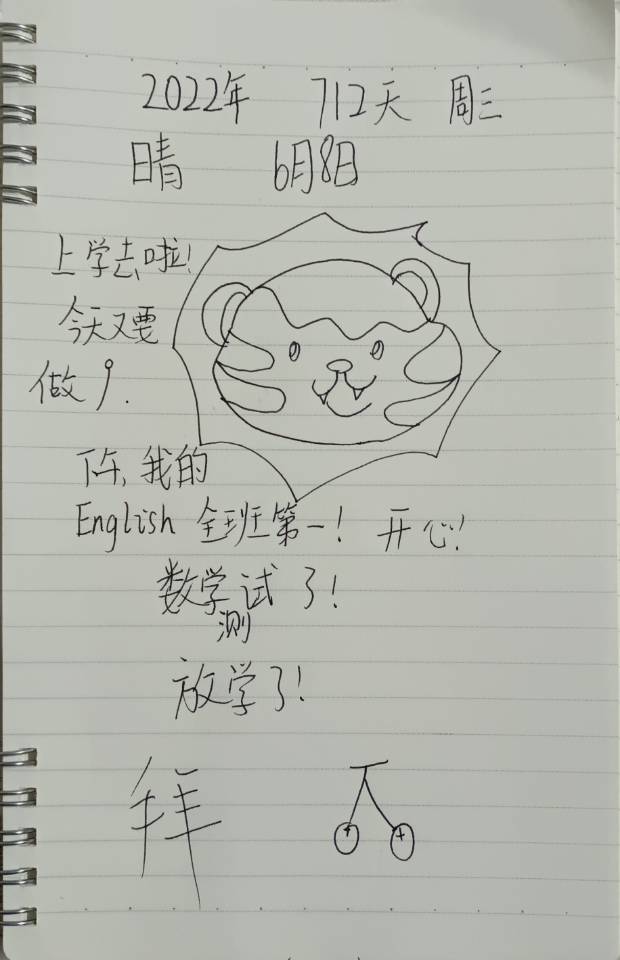 2022年 712天 周三
晴 6月8日
上学去啦!
今天又要
做
下午,我的
English 全班第一! 开心!
数学测试了!
放学了!
拜